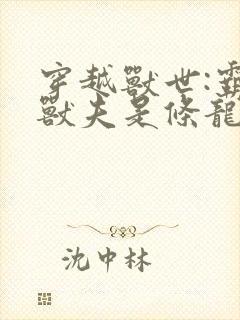 穿越獸世:霸
獸夫是條龍
沈中林